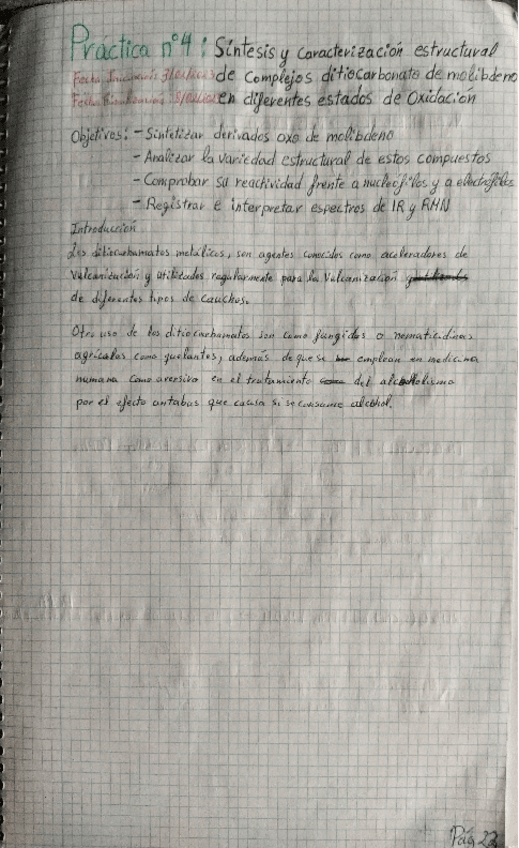 Práctica nº4: Síntesis y caracterización estructural
de complejos ditiocarbonato de molibdeno
en diferentes estados de Oxidación
Objetivos: - Sintetizar derivados oxo de molibdeno
- Analizar la variedad estructural de estos compuestos
- Comprobar su reactividad frente a nucleófilos y a electrófilos
- Registrar e interpretar espectros de IR y RMN
Introducción
Los ditiocarbamatos metálicos, son agentes conocidos como aceleradores de
vulcanización y utilizados regularmente para la vulcanización
de diferentes tipos de cauchos.
Otro uso de los ditiocarbamatos son como fungidas o nematicidinas
agrícolas como quelantes, además de que se emplean en medicina
humana como aversivo en el tratamiento del alcoholismo
por el efecto antabus que causa si se consume alcohol.
Pág 23